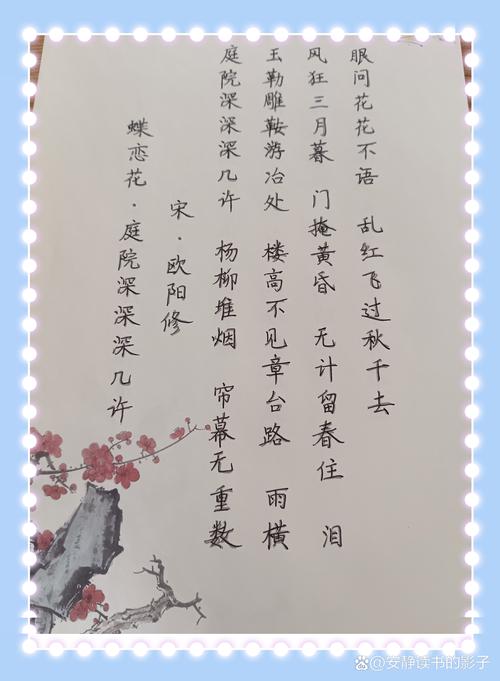 蝶恋花·庭院深深深几许
宋·欧阳修
庭院深深深几许 杨柳堆烟 帘幕无重数
玉勒雕鞍游冶处 楼高不见章台路 雨横
风狂三月暮 门掩黄昏 无计留春住 泪
眼问花花不语 乱红飞过秋千去
@安静读书的影子